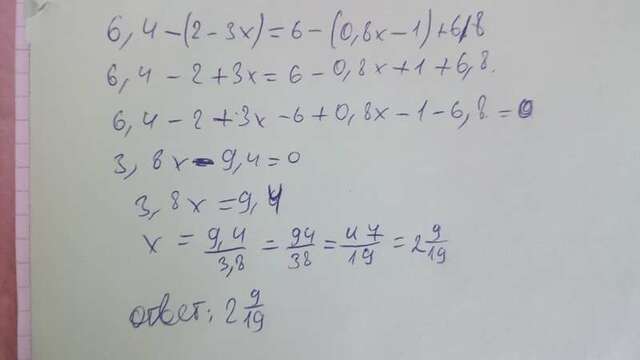 6,4-(2-3x)=6-(0,8x-1)+6,8
6,4-2+3x=6-0,8x+1+6,8.
6,4-2+3x-6+0,8x-1-6,8=0
3,8x-9,4=0
3,8x=9,4
x = 9,4/3,8 = 94/38 = 47/19 = 2 9/19
ответ: 2 9/19